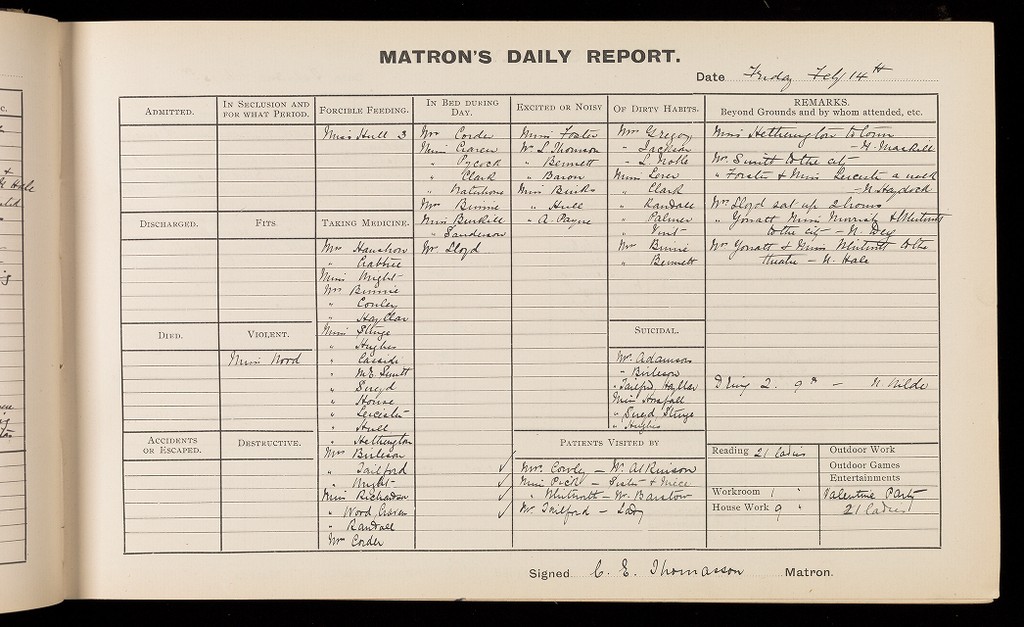 MATRON'S DAILY REPORT.
Date Friday Feby 14th
ADMITTED.
IN SECLUSION AND FOR WHAT PERIOD.
FORCIBLE FEEDING.
Miss Hull 3
IN BED DURING DAY.
Mrs Corder
Miss Craven
" Pycock
" Clark
"
Mrs Binnie
Miss Burkill
" Sanderson
Mrs Lloyd
EXCITED OR NOISY
Miss Foster
Mrs L. Thomson
" Bennett
" Baron
Miss Binks
" Hull
" A. Payne
OF DIRTY HABITS.
Mrs Gregory
" Jackson
" L. Noble
Miss
" Clark
" Randall
" Palmer
" Vint
Mrs Binnie
" Bennett
REMARKS.
Beyond Grounds and by whom attended, etc.
Miss Hetherington to town
— N. Maskell
Mrs Smith to the city
" Forster & Miss Leicester a walk
— N. Haydock
Mrs Lloyd sat up 2 hours
" Yonatt Miss & Whitwell
to the city — N. Dey
Mrs Yonatt & Miss Whitwell to the
theatre — N. Hale
2. 9 — N. Wilde
DISCHARGED.
FITS
TAKING MEDICINE.
Mrs
" Crabtree
Miss Wright
Mrs Binnie
" Conley
" Hayllar
Miss Sturge
" Hughes
" Cassidi
" M.E. Smith
" Sugd
" House
" Leicester
" Hull
" Hetherington
Mrs Birleson
" Tailford
" Wright
Miss Richardson
" Wood, Craven
" Randall
Mrs Corder
DIED.
VIOLENT.
Miss Wood
SUICIDAL.
Mrs Adamson
" Birleson
" Tailford, Hayllar
Miss Horsfall
" Sugd Sturge
" Hughes
ACCIDENTS OR ESCAPED.
DESTRUCTIVE.
PATIENTS VISITED BY
Mrs Cowley — Mr Atkinson
Miss Pick — Sister & Niece
" Whitwell — Mr Barstow
Mrs Tailford — Lady
Reading 21 Ladies
Workroom 1 "
House Work 9 "
Outdoor Work
Outdoor Games
Entertainments
Valentine Party
21 Ladies
Signed C. E. Thomasson Matron.